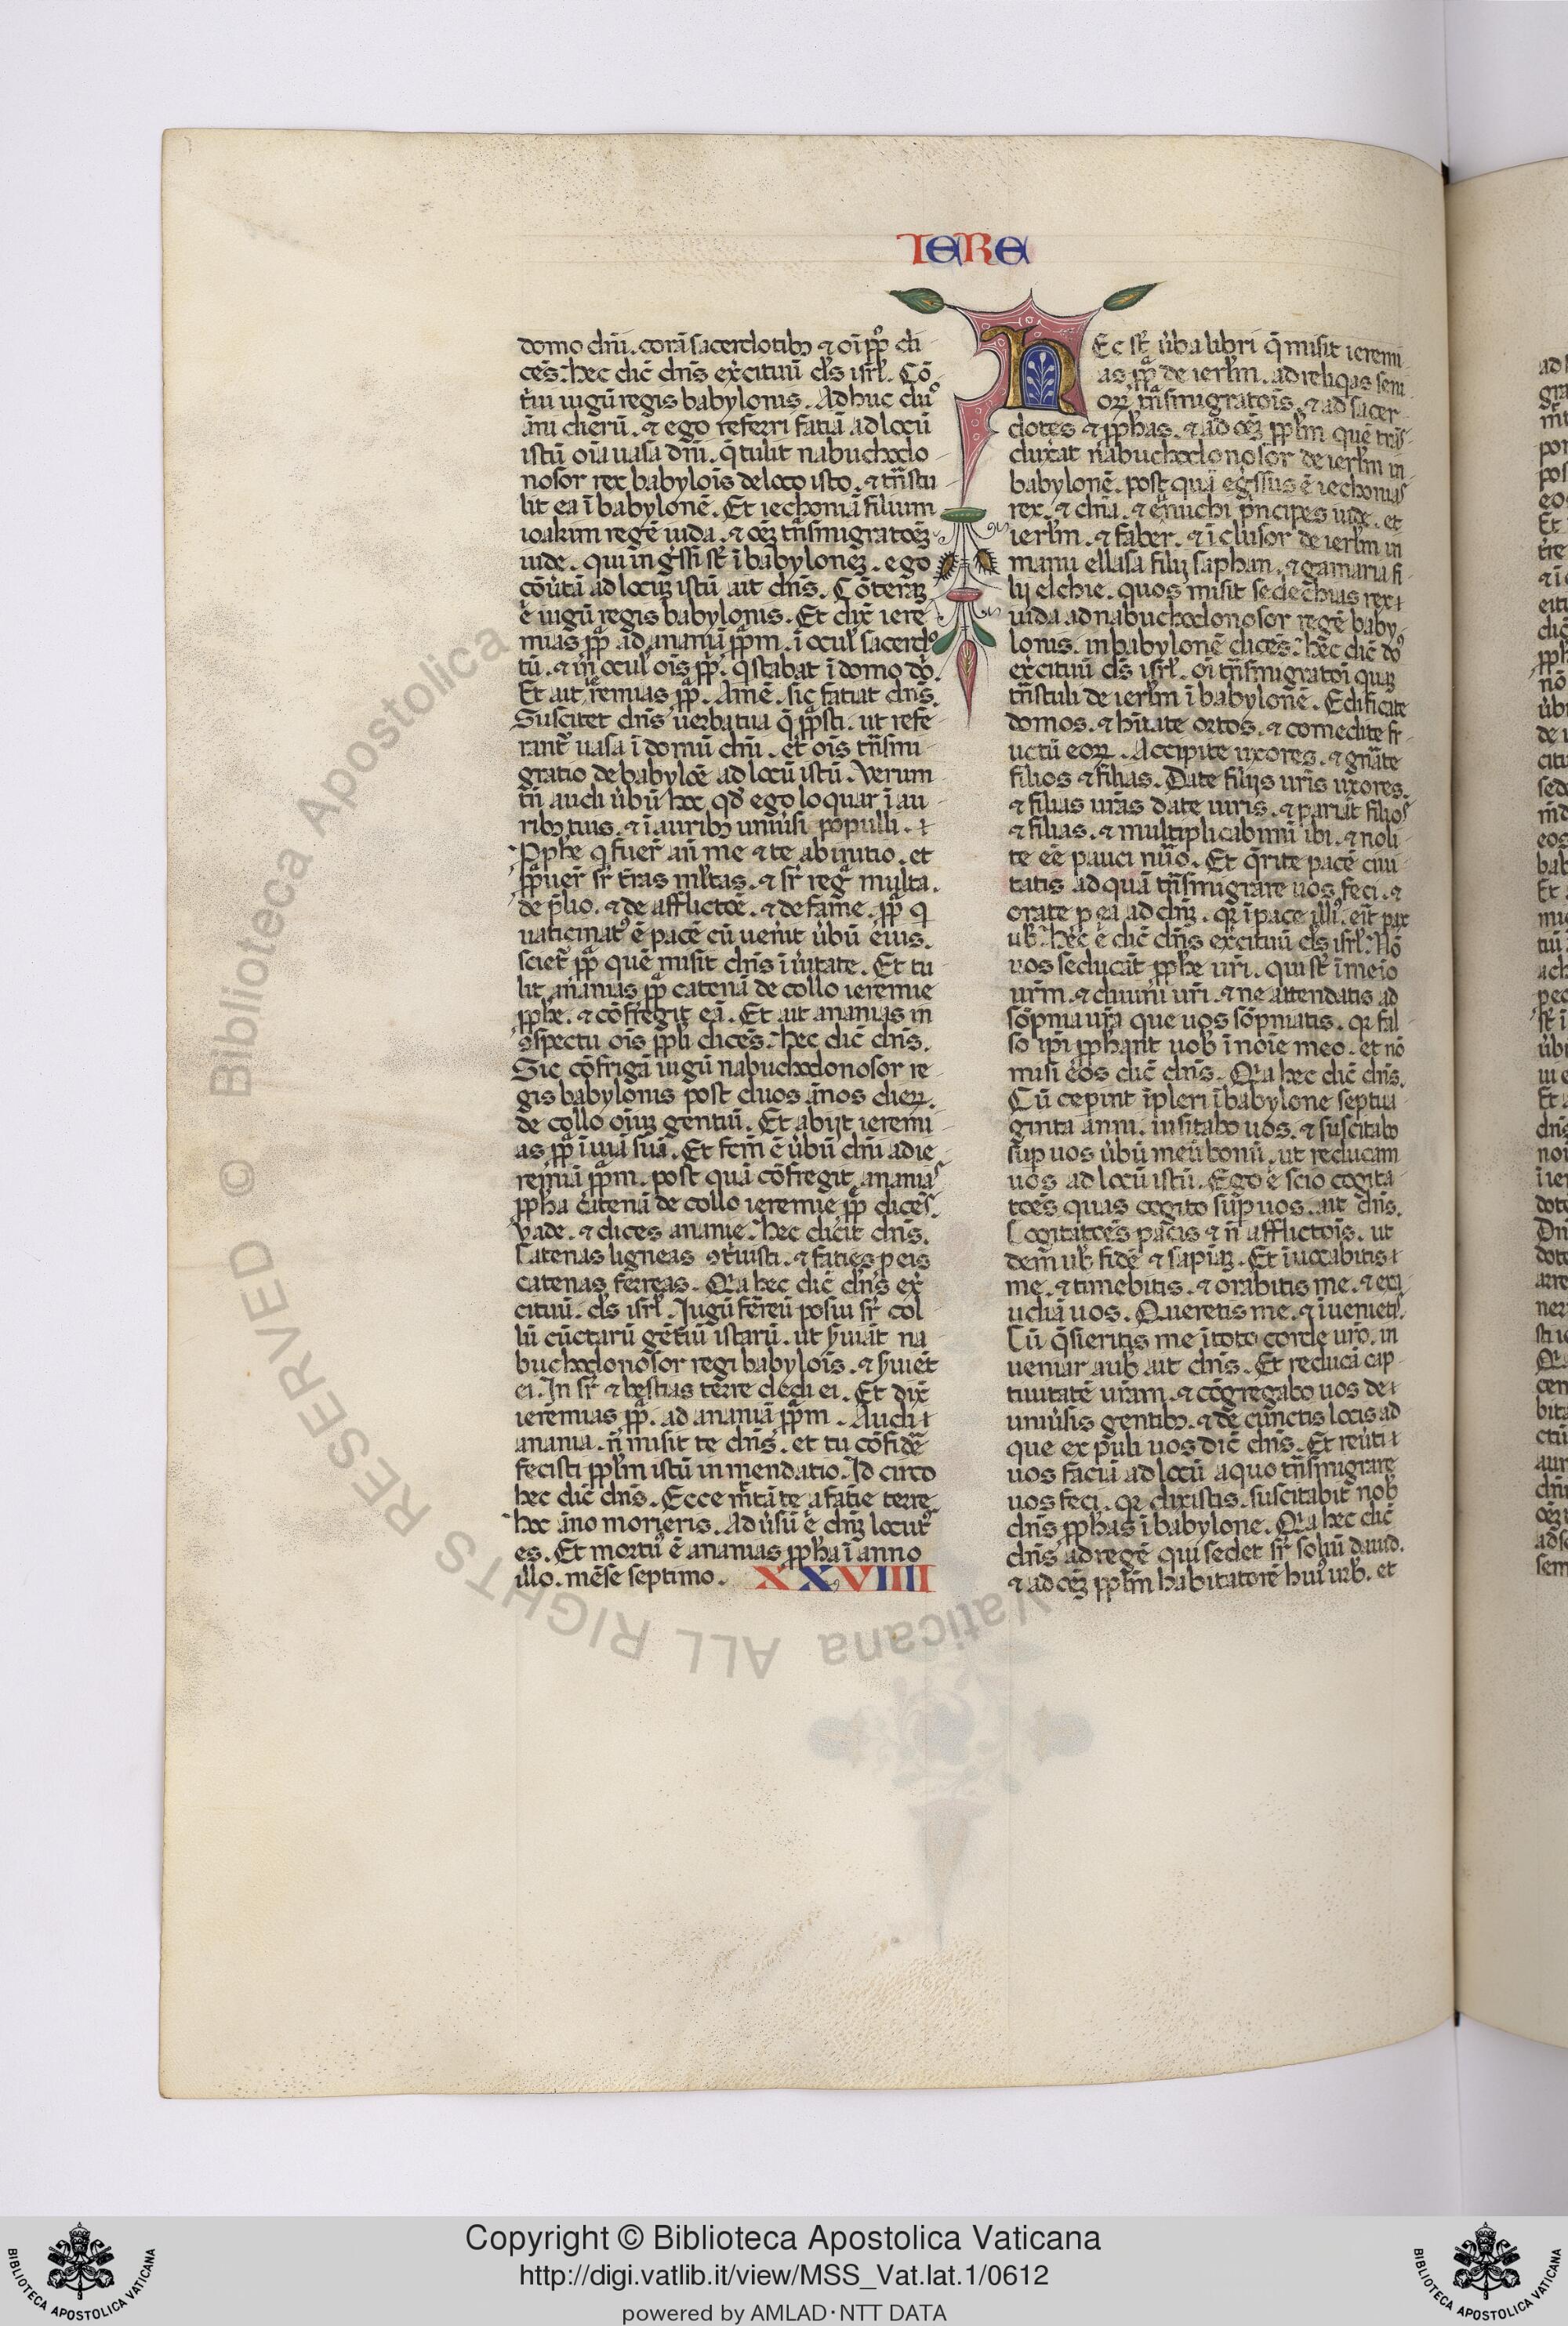 IERE
domo dnī. corā sacerdotibȝ ⁊ oī ppło di
cēs: hec dic̄ dnš exc̓ituū ds̄ isrł. Cō
t̓ui iugū regis babylonis. Adhuc duo
āni dierū. ⁊ ego referri fatiā ad locū
istū oīa uasa dnī. q̄ tulit nabuchodo
nosor rex babyloīs de loco isto. ⁊ tn̄stu
lit ea ī babylonē. Et iechoniā filium
ioakim regē iuda. ⁊ oēȝ tn̄smigratoēȝ
iude. qui ingssi st̄ ī babyloneȝ. ego
cōutā ad locuȝ istū ait dnš. Cōterāȝ
ē iugū regis babylonis. Et dix̄ iere
mias ppͣ ad ananiā ppͣm. ī ocul̓ sacerdo
tū. ⁊ in ocul̓ oīs ppłi. q̓ stabat ī domo do.
Et ait iēremias ppͣ. Amē. sic fatiat dnš.
Suscitet dnš uerba tua q̄ ppͣsti. ut refe
rant̄ uasa ī domū dnī. et oīs tn̄smi
gratio de babyloē ad locū istū. Verum
tn̄ audi ubū hoc qd̓ ego loquar ī au
ribȝ tuis. ⁊ ī auribȝ uniusi populli.
Pphe q̓ fuer̄ an̄ me ⁊ te ab initio. et
ppͣuer̄ sr̄ tr̄as ml̓tas. ⁊ sr̄ regͣ multa.
de p̄lio. ⁊ de afflictoē. ⁊ de fame. ppͣ q̓
uaticinat̓ ē pacē cū uenit ubū eius.
sciet̄ ppͣ quē misit dnš ī uitate. Et tu
lit ananias ppͣ catenā de collo ieremie
pphe. ⁊ cōfregit eā. Et ait ananias in
ꝯspectu oīs ppłi dicēs: hec dic̄ dnš.
Sic cōfrigā iugū nabuchodonosor re
gis babylonis post duos ānos dieꝝ.
de collo oīuȝ gentiū. Et abijt ieremi
as ppͣ ī uiā suā. Et fcm̄ ē ubū dnī ad ie
remiā ppͣm. post quā cōfregit anania
ppha catenā de collo ieremie ppͣ dicēs.
Vade. ⁊ dices ananie. hec dicit dnš.
Catenas ligneas ꝯtriuisti. ⁊ faties p eis
catenas ferreas. Qꝛa hec dic̄ dnš ex̓
cituū. ds̄ isrł. Iugū ferreū posui sr̄ col
lū cūctarū gētiū istarū. ut ȝuiāt na
buchodonosor regi babyloīs. ⁊ ȝuiēt
ei. In sr̄ ⁊ bestias terre dedi ei. Et dix̄
ieremias ppͣ. ad ananiā ppͣm. Audi
anania. n̄ misit te dnš. et tu cōfidē
fecisti ppłm istū in mendatio. Id circo
hec dic̄ dnš. Ecce mītā te a fatie terre
hoc āno morieris. Ad usū ē dnȝ locut̓
es. Et mortu̓ ē ananias ppha ī anno
illo. mēse septimo. XXVIIII
HEc st̄ uba libri q̄ misit ieremi
as ppͣ de ierłm. ad reliqas seni
oꝝ tn̄smigratoīs. ⁊ ad sacer
dotes ⁊ pphas. ⁊ ad oēȝ ppłm quē trās
duxat nabuchodonosor de ierłm in
babylonē. post quā egssus ē iechonias
rex. ⁊ dn̄a. ⁊ eunuchi pncipes iude. et
ierłm. ⁊ faber. ⁊ ī clusor de ierłm in
manu ellasa filij saphan. ⁊ gamaria fi
lij elchie. quos misit sedechias rex
iuda ad nabuchodonosor regē baby
lonis. in babylonē dicēs: hec dic̄ do
exc̓ituū ds̄ isrł. oī tn̄smigratoī quaȝ
tn̄stuli de ierłm ī babylonē. Edificate
domos. ⁊ hitate ortos. ⁊ comedite fr
uctū eoꝝ. Accipite uxores. ⁊ gnāte
filios ⁊ filias. Date filijs uris uxores.
⁊ filias uras date uiris. ⁊ pariāt filios
⁊ filias. ⁊ multiplicābimī ibi. ⁊ noli
te eē pauci nūo. Et qrite pacē ciui
tatis ad quā tn̄smigrare uos feci. ⁊
orate p ea ad dnȝ. qꝛ ī pace illi̓ eit pax
ub̓. Hec ē dic̄ dnš exc̓ituū ds̄ isrł: Nō
uos seducāt pphe uri. qui st̄ ī meio
urm. ⁊ diuini uri. ⁊ ne attendatis ad
sōpnia ura que uos sōpniatis. qꝛ fal
so ipi pphant uob̓ ī noīe meo. et nō
misi eos dic̄ dnš. Qꝛa hec dic̄ dnš.
Cū cepint īpleri ī babylone septua
ginta anni. uisitabo uos. ⁊ suscitabo
sup uos ubū meū bonū. ut reducam
uos ad locū istū. Ego ē scio cogita
toēs quas cogito sup uos. ait dnš.
Cogitatoēs pacis ⁊ n̄ afflictoīs. ut
dem ub̓ fidē ⁊ sapiāȝ. Et īuocabitis
me. ⁊ timebitis. ⁊ orabitis me. ⁊ exa
udiā uos. Queretis me. ⁊ īuenietis.
Cū qsieritis me ī toto corde uro. in
ueniar a ub̓ ait dnš. Et reducā cap
tiuitatē uram. ⁊ cōgregabo uos de
uniūsis gentibȝ. ⁊ de cunctis locis ad
que expuli uos dic̄ dnš. Et reūti
uos faciā ad locū a quo tn̄smigrare
uos feci. qꝛ dixistis. suscitabit nob̓
dnš pphas ī babylone. Qꝛa hec dic̄
dnš ad regē qui sedet sr̄ soliū dauid.
⁊ ad oēȝ ppłm habitatorē hui̓ urb. et
© Biblioteca Apostolica Vaticana ALL RIGHTS RESERVED
Copyright © Biblioteca Apostolica Vaticana
http://digi.vatlib.it/view/MSS_Vat.lat.1/0612
powered by AMLAD·NTT DATA
BIBLIOTECA APOSTOLICA VATICANA
BIBLIOTECA APOSTOLICA VATICANA